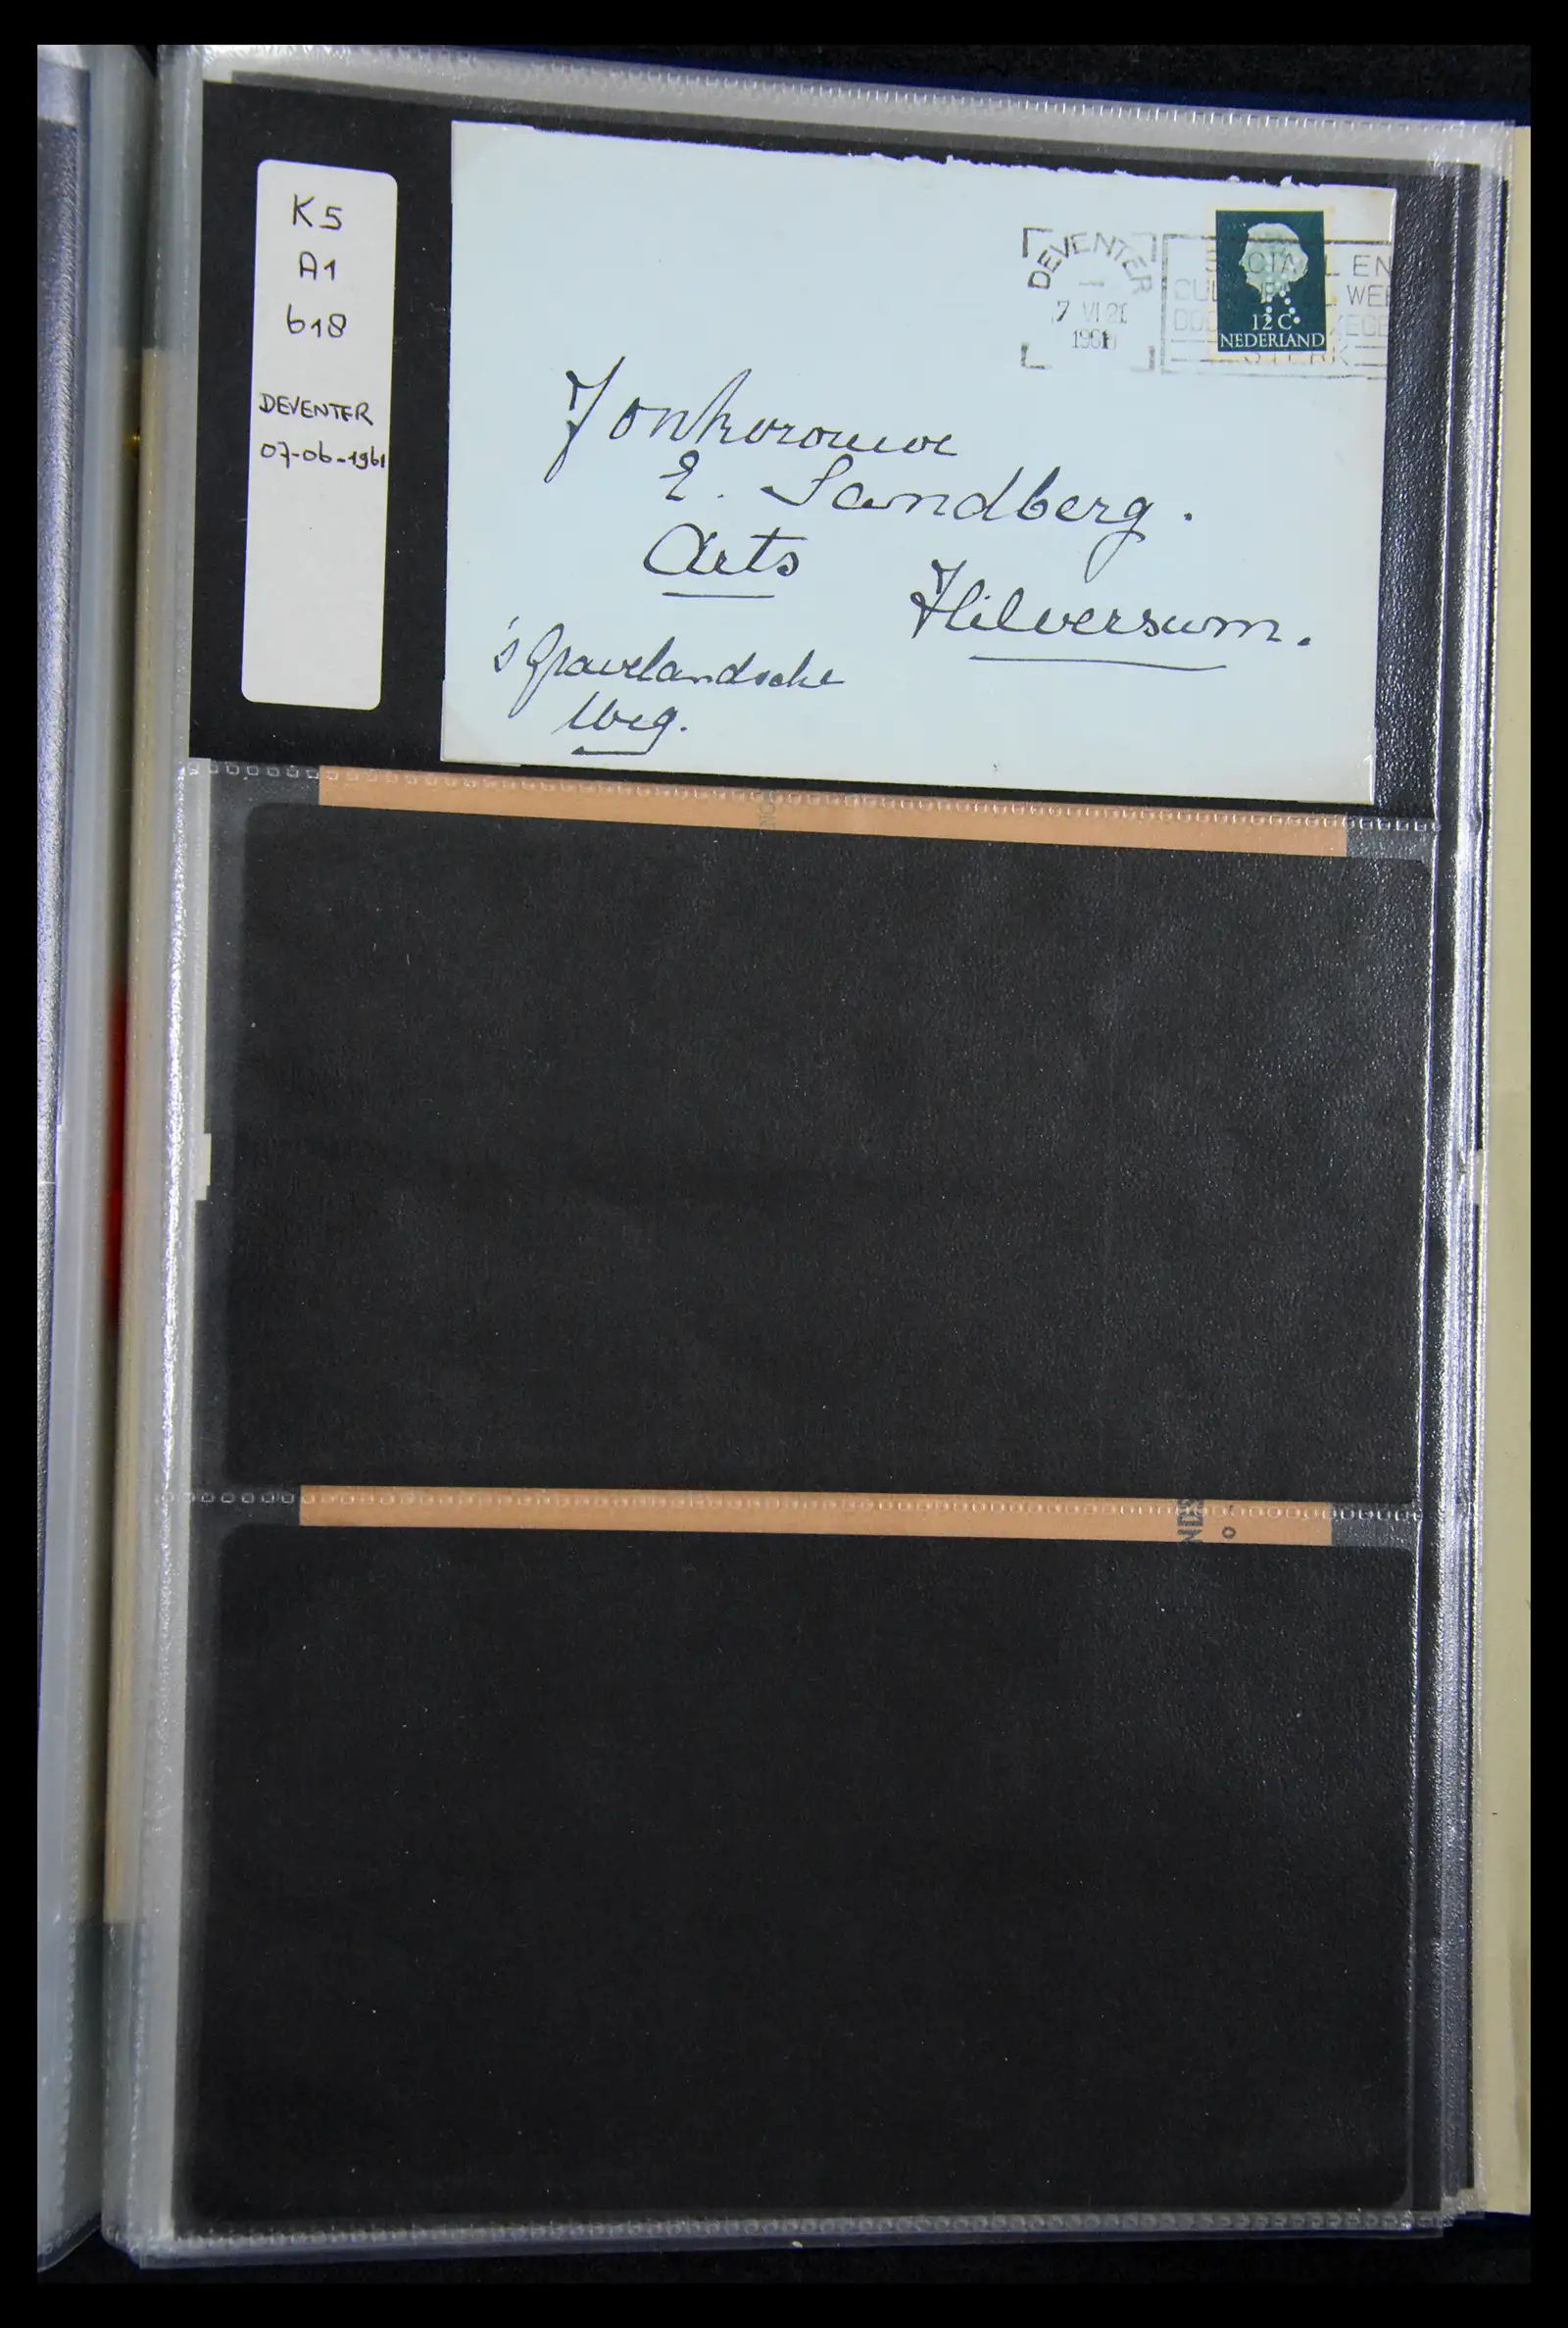 K5
A1
b18
DEVENTER
07-06-1961
DEVENTER
7 VI 21
1961
SOCIAAL EN
STERK
12 C
NEDERLAND
Jonkvrouwe
E. Sandberg.
Arts
Hilversum.
's Gravelandsche
Weg.